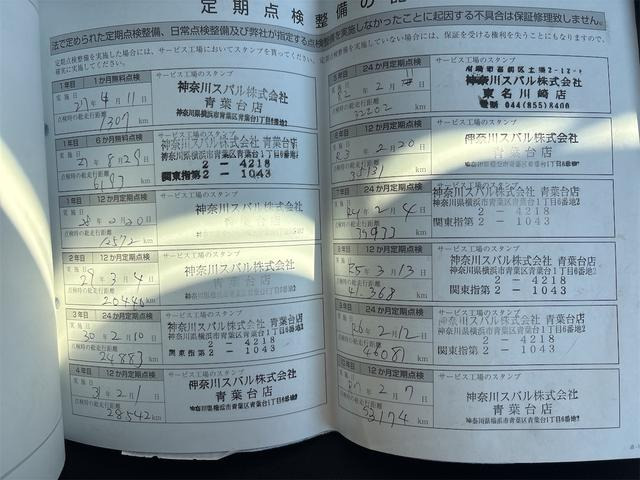 定期点検整備の記
法で定められた定期点検整備、日常点検整備及び弊社が指定する点検整備を実施しなかったことに起因する不具合は保証修理致しません。
定期点検整備を実施した場合には、サービス工場においてスタンプを買ってください。定期点検整備を実施していない場合には、保証を受ける権利を失うことにもなりますので、
確実に実施してください。
1年目 1か月無料点検
サービス工場のスタンプ
実施日 27年4月11日
神奈川スバル株式会社
青葉台店
点検時の総走行距離
神奈川県横浜市青葉区青葉台1丁目6番地2
1307 km
1年目 6か月無料点検
サービス工場のスタンプ
実施日 27年8月29日
神奈川スバル株式会社 青葉台店
神奈川県横浜市青葉区青葉台1丁目6番地2
点検時の総走行距離
2 - 4218
6193 km
関東指第2 - 1043
1年目 12か月定期点検
サービス工場のスタンプ
実施日 28年2月20日
神奈川スバル株式会社
青葉台店
点検時の総走行距離
12572 km
2年目 12か月定期点検
サービス工場のスタンプ
実施日 29年3月4日
神奈川スバル株式会社
青葉台店
点検時の総走行距離
神奈川県横浜市青葉区青葉台1丁目6番地2
20446 km
3年目 24か月定期点検
サービス工場のスタンプ
実施日 30年2月10日
神奈川スバル株式会社 青葉台店
神奈川県横浜市青葉区青葉台1丁目6番地2
点検時の総走行距離
2 - 4218
24883 km
関東指第2 - 1043
4年目 12か月定期点検
サービス工場のスタンプ
実施日 31年2月1日
神奈川スバル株式会社
青葉台店
点検時の総走行距離
神奈川県横浜市青葉区青葉台1丁目6番地2
28542 km
年目 24か月定期点検
サービス工場のスタンプ
神奈川スバル株式会社
東名川崎店
電話 044(855)8400
点検時の総走行距離
32202 km
年目 12か月定期点検
サービス工場のスタンプ
3年2月20日
神奈川スバル株式会社
青葉台店
点検時の総走行距離
神奈川県横浜市青葉区青葉台1丁目6番地2
35131 km
年目 24か月定期点検
サービス工場のスタンプ
R4年2月4日
神奈川スバル株式会社 青葉台店
神奈川県横浜市青葉区青葉台1丁目6番地2
点検時の総走行距離
2 - 4218
km
関東指第2 - 1043
年目 12か月定期点検
サービス工場のスタンプ
R5年3月13日
神奈川スバル株式会社 青葉台店
神奈川県横浜市青葉区青葉台1丁目6番地2
点検時の総走行距離
2 - 4218
41368 km
関東指第2 - 1043
年目 24か月定期点検
サービス工場のスタンプ
R6年2月12日
神奈川スバル株式会社 青葉台店
神奈川県横浜市青葉区青葉台1丁目6番地2
点検時の総走行距離
2 - 4218
46081 km
関東指第2 - 1043
年目 12か月定期点検
サービス工場のスタンプ
年2月7日
神奈川スバル株式会社
青葉台店
点検時の総走行距離
神奈川県横浜市青葉区青葉台1丁目6番地2
53174 km